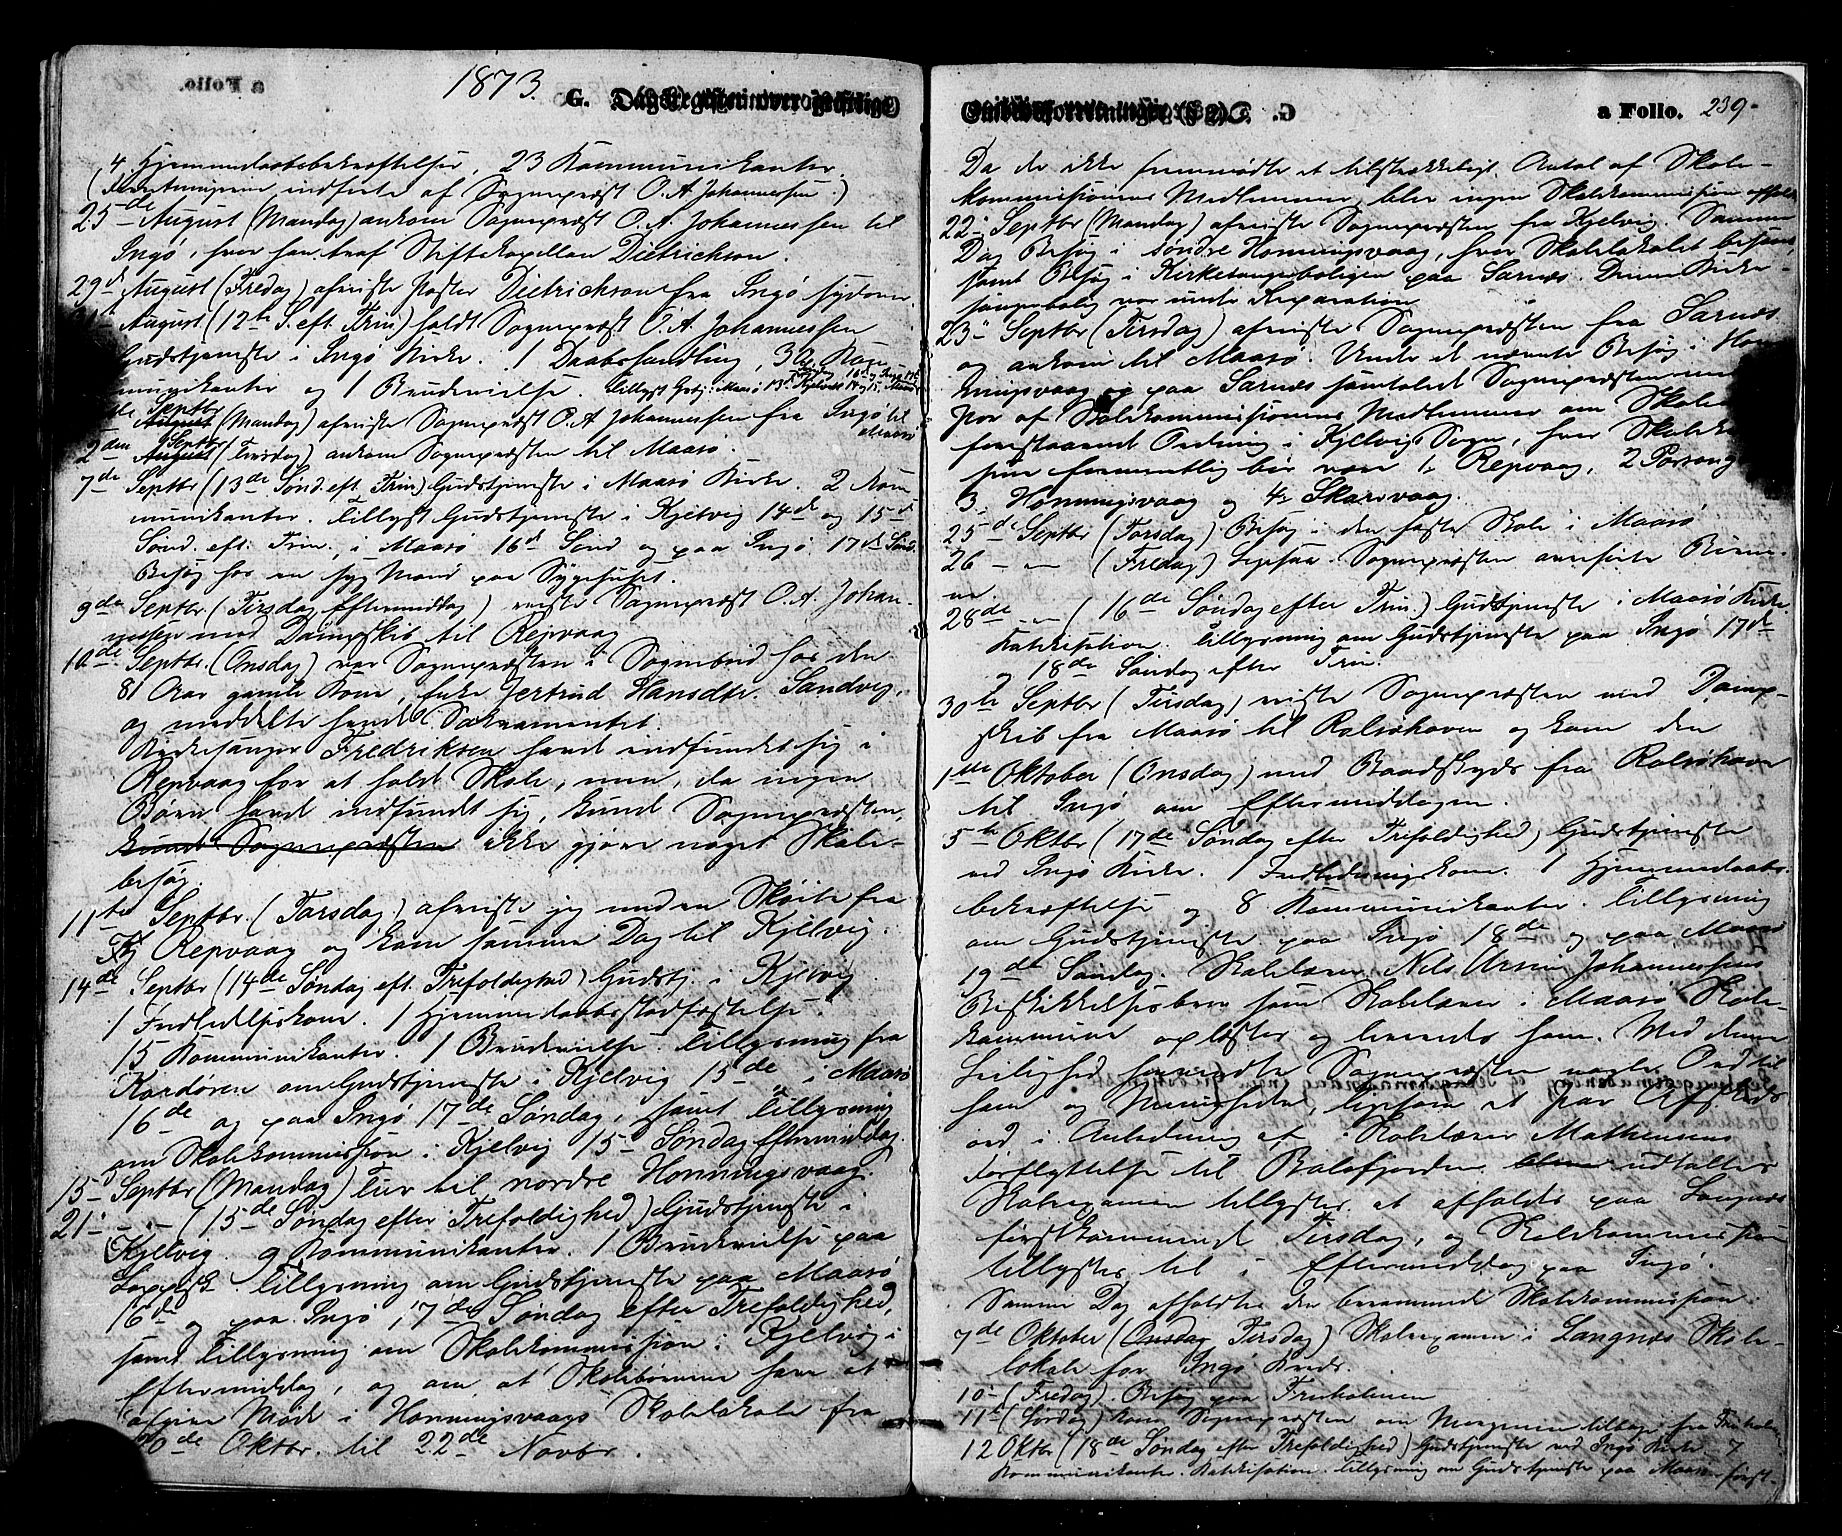 1873.
G. Dagregister over geistlige
4 Hjemmedaabsbekræftelser, 23 Kommunikanter.
(Forretningerne indførte af Sognepræst O. A. Johannessen.)
25de August (Mandag) ankom Sognepræst O. A. Johannessen til
Ingø, hvor han traf Stiftskapellan Dietrichson.
29de August (Fredag) afreiste Pastor Dietrichson fra Ingø sydover.
August (12te S. eft. Trin.) holdt Sognepræst O. A. Johannessen
Gudstjeneste i Ingø Kirke. 1 Daabshandling, 30 Kom-
munikanter og 1 Brudevielse. Tillyst Gstj. i Maasø 13de Kjelvik 14 og 15
Septbr
August (Mandag) afreiste Sognepræst O. A. Johannessen fra Ingø til
Maasø
2den August Septbr (Tirsdag) ankom Sognepræsten til Maasø.
7de Septbr (13de Sønd. eft. Trin.) Gudstjeneste i Maasø Kirke. 2 Kom-
munikanter. Tillyst Gudstjeneste i Kjelvig 14de og 15de
Sønd. eft. Trin., i Maasø 16de Sønd og paa Ingø 17de Sønd.
Besøg hos en syg Mand paa Sygehuset.
9de Septbr. (Tirsdag Eftermiddag) reiste Sognepræst O. A. Johan-
nessen med Dampskib til Repvaag
10de Septbr. (Onsdag) var Sognepræsten i Sognebud hos den
81 Aar gamle Kone, Enke Jertrud Hansdtr. Sandvig,
og meddelte hende Sakramentet.
Kirkesanger Fredriksen havde indfundet sig i
Repvaag for at holde Skole, men, da ingen
Børn havde indfundt sig, kunde Sognepræsten,
kunde Sognepræsten ikke gjøre noget Skole-
besøg.
11te Septbr. (Torsdag) afreiste jeg med en Skøite fra
Repvaag og kom samme Dag til Kjelvig.
14de Septbr (14de Søndag eft. Trefoldighed) Gudstj. i Kjelvig
1 Indledelseskone. 1 Hjemmedaabsstadfæstelse.
15 Kommunikanter. 1 Brudevielse. Tillysning fra
Kordøren om Gudstjeneste i Kjelvig 15de, i Maasø
16de og paa Ingø 17de Søndag, samt Tillysning
om Skolekommission i Kjelvig 15de Søndag Eftermiddag.
15de Septbr (Mandag) Tur til nordre Honningsvaag.
21de — — (15de Søndag efter Trefoldighed) Gudstjeneste i
Kjelvig. 9 Kommunikanter. 1 Brudevielse paa
Tillysning om Gudstjeneste paa Maasø
16de og paa Ingø 17de Søndag efter Trefoldighed,
samt Tillysning om Skolekommission i Kjelvig i
Eftermiddag, og om, at Skolebørnene have at
afgive Møde i Honningsvaags Skolelokale fra
de Oktbr. til 22de Novbr.
Embedsforretninger (§ 2). G.
a Folio. 239
Da der ikke fremmødte et tilstrækkeligt Antal af Skole-
kommissionens Medlemmer, blev ingen Skolekommission afholdt
22de Septbr (Mandag) afreiste Sognepræsten fra Kjelvig. Samme
Dag Besøg i søndre Honningsvaag, hvor Skolelokalet besaaes,
samt Besøg i Kirkesangerboligen paa Sarnæs. Denne Kirke-
sangerbolig var under Reparation.
23de Septbr (Tirsdag) afreiste Sognepræsten fra Sarnæs
og ankom til Maasø. Under det nævnte Besøg i Hon-
ningsvaag og paa Sarnæs samtalede Sognepræsten med
Par af Skolekommissionens Medlemmer om Skole
forestaaende Ordning i Kjelvigs Sogn, hvor
formentlig bør være 1. Repvaag, 2
3. Honningsvaag og 4. Skarsvaag.
25de Septbr (Torsdag) Besøg i den faste Skole i Maasø
26 — — (Fredag) Ligesaa. Sognepræsten
28de — — (16de Søndag efter Trin.) Gudstjeneste i Maasø Kirke.
Katekisation. Tillysning om Gudstjeneste paa Ingø 17de
og 18de Søndag efter Trin.
30te Septbr (Tirsdag) reiste Sognepræsten med Damp-
skib fra Maasø til Rolvsøhavn og kom den
1ste Oktober (Onsdag) med Baadskyds fra Rolvsøhavn
til Ingø om Eftermiddagen.
5te Oktbr (17de Søndag efter Trefoldighed) Gudstjeneste
ved Ingø Kirke. 1 Indledningskone. 1 Hjemmedaabs-
bekræftelse og 8 Kommunikanter. Tillysning
om Gudstjeneste paa Ingø 18de og paa Maasø
19de Søndag. Skolelærer Nils Johannessens
Beskikkelsesbrev som Skolelærer i Maasø Skole-
kommune oplæstes og leveredes ham. Ved denne
Leilighed henvendte Sognepræsten nogle Ord til
ham og Menigheden, ligesom et Par Afskeds-
ord i Anledning af Skolelærer Mathiesens
Forflyttelse til Balsfjorden udtaltes
Skolexamen tillystes at afholdes paa Langnæs
førstkommende Tirsdag, og Skolekommission
tillystes til i Eftermiddag paa Ingø.
Samme Dag afholdtes den berammede Skolekommission.
7de Oktober (Onsdag Tirsdag) Skolexamen i Langnæs Skole-
lokale for Ingø Kreds.
10de (Fredag). Besøg paa Fruholmen
11te (Lørdag) kom Sognepræsten om Morgenen tilbage fra
12 Oktbr (18de Søndag efter Trefoldighed) Gudstjeneste ved Ingø Kirke. 7
Kommunikanter. Katekisation. Tillysning om Gudstjeneste paa Maasø først-